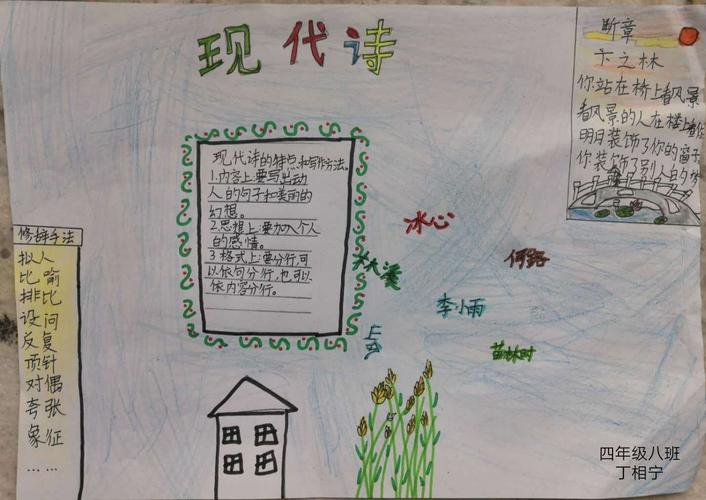 现代诗
断章
卞之林
你站在桥上看风景
看风景的人在楼上看你
明月装饰了你的窗子
你装饰了别人的梦
现代诗的特点和写作方法。
1.内容上:要写出动
人的句子和美丽的
幻想。
2.思想上:要加入个人
的感情。
3.格式上:要分行,可
以依句分行,也可以
依内容分行。
冰心
何路
李小雨
修辞手法
拟人
比喻
排比
设问
反复
顶针
对偶
夸张
象征
……
四年级八班
丁相宁